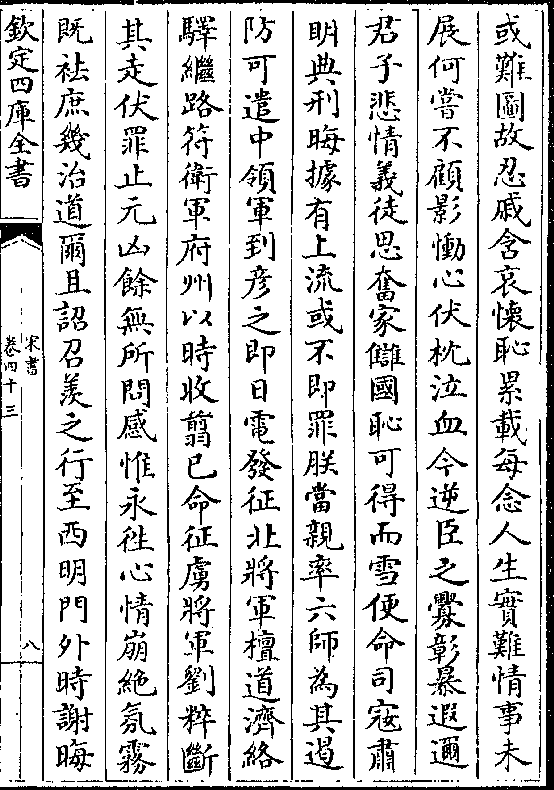 或難圖故忍戚含哀懷恥累載每念人生實難情事未
展何嘗不顧影慟心伏枕泣血今逆臣之釁彰暴遐邇
君子悲情義徒思奮家讎國恥可得而雪便命司寇肅
明典刑晦據有上流或不即罪朕當親率六師為其遏
防可遣中領軍到彦之即日電發征北將軍檀道濟絡
驛繼路符衛軍府州以時收翦已命征虜將軍劉粹斷
其走伏罪止元凶餘無所問感惟永往心情崩絕氛霧
既袪庶幾治道爾且詔召羨之行至西明門外時謝晦
欽定四庫全書
宋書
卷四十三
八